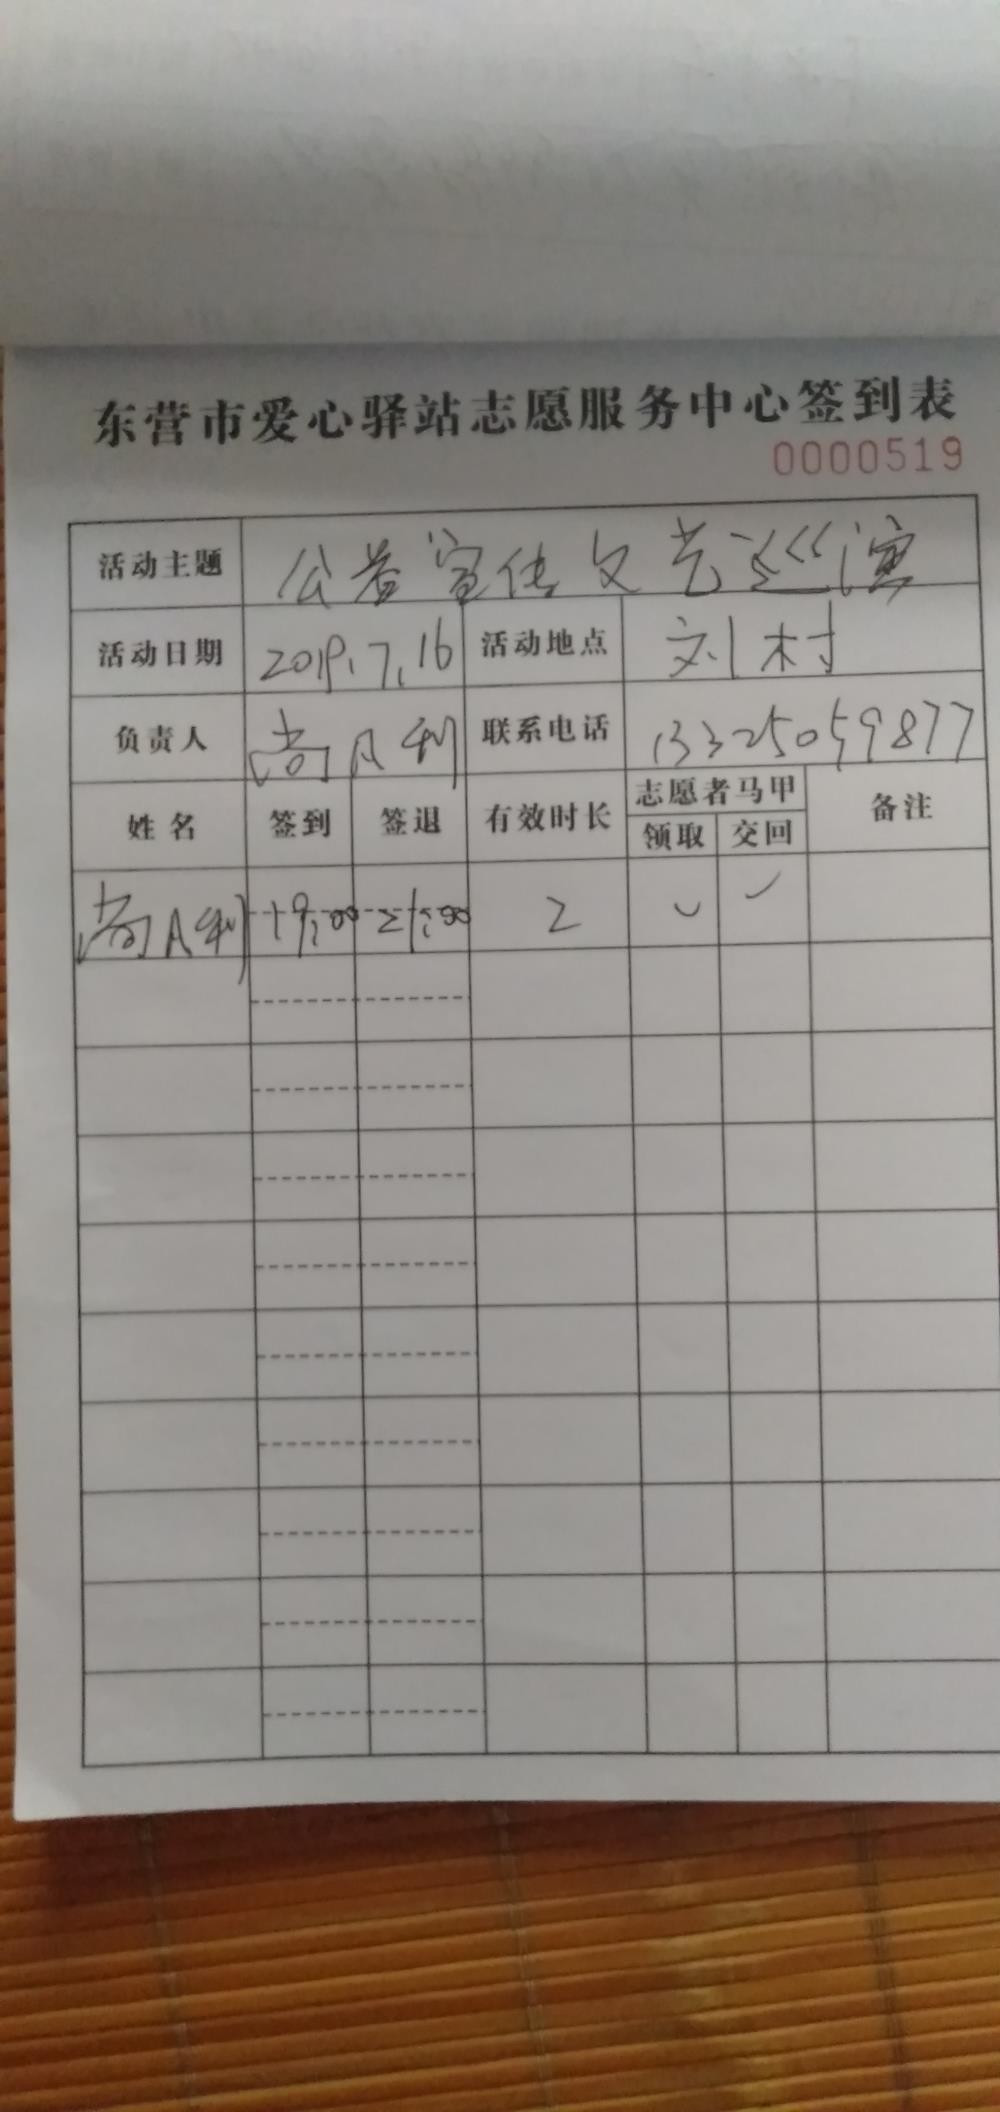 东营市爱心驿站志愿服务中心签到表
0000519
活动主题 公益宣传文艺巡演
活动日期 2019.7.16 活动地点 刘村
负责人 尚凡利 联系电话 13325059877
姓名 签到 签退 有效时长 志愿者马甲 备注
领取 交回
尚凡利 19:00 21:00 2 ✓ ✓